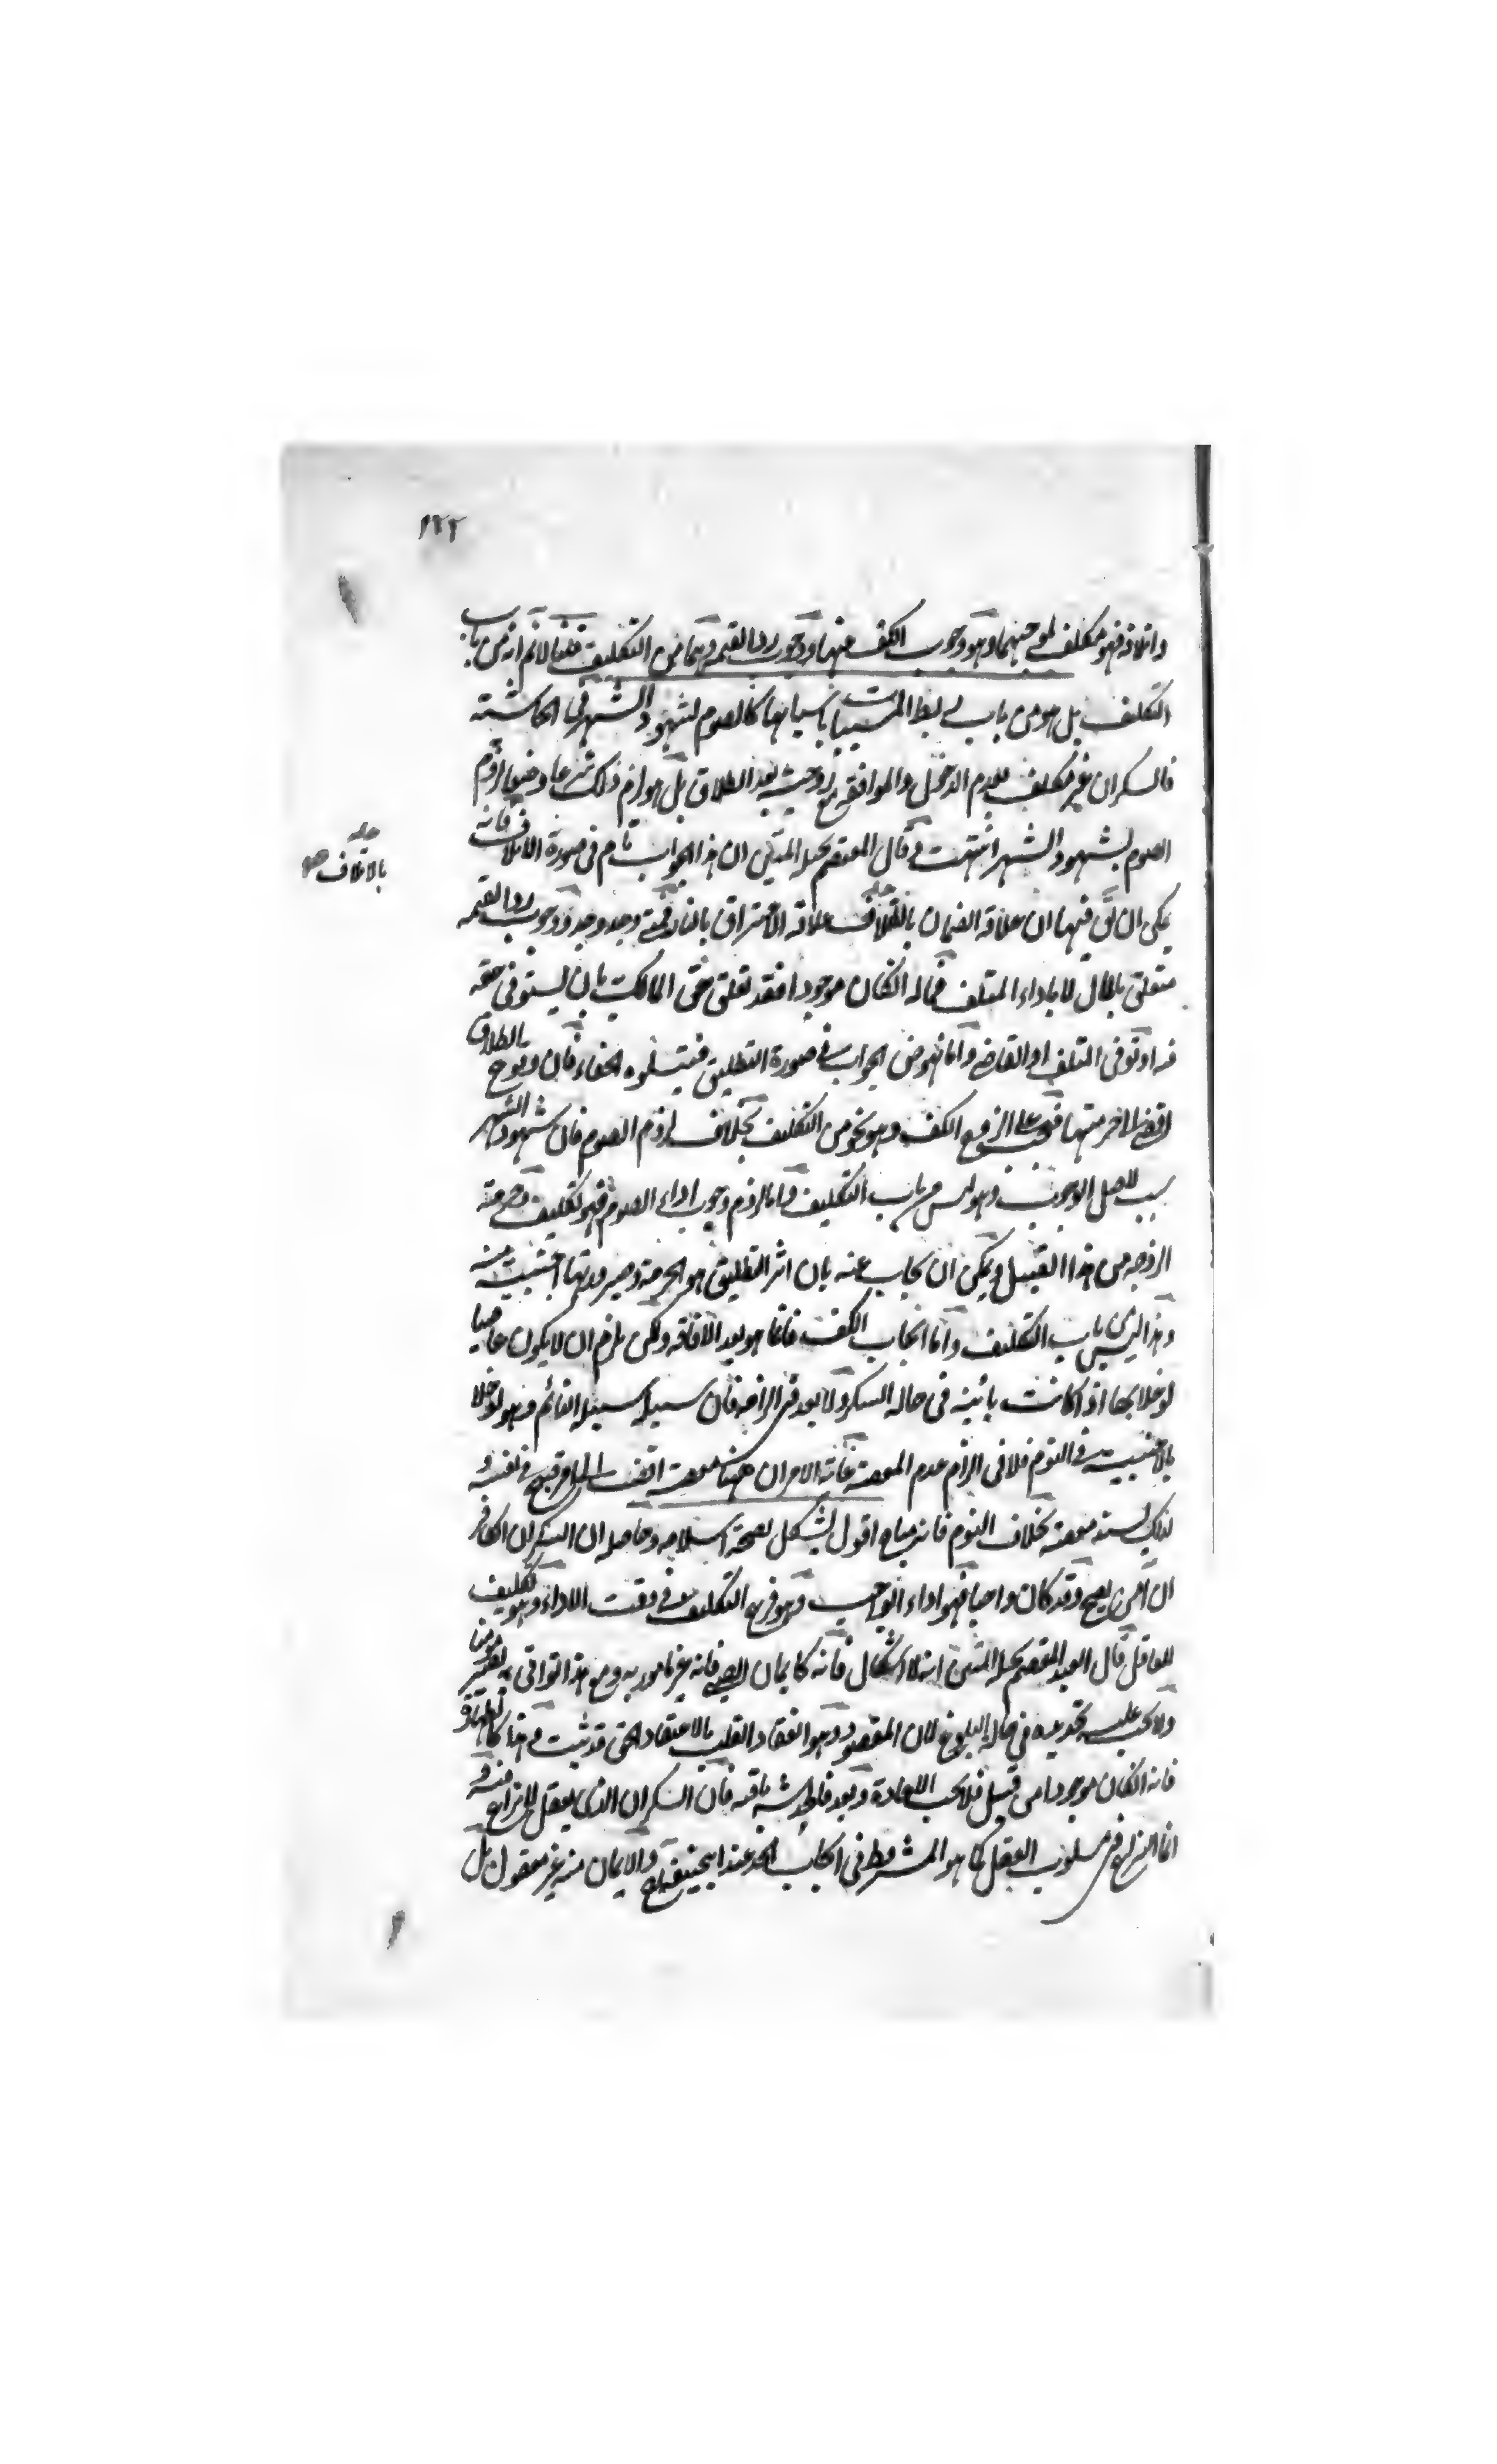 ١٢٢
واتلافه فهو مكلف لموجبهما وهو وجوب الكف عنها ووجوب رد القيمة وهما من التكليف قلنا لا نم انه من باب
التكليف بل هو من باب ربط المسببات باسبابها كالصوم لشهود الشهر في الحاشية
فالسكران غير مكلف بعدم الدخول والموافقة مع زوجته بعد الطلاق بل هو لازم ذلك شرعا وضعا لزوم
الصوم بشهود الشهر انتهت قال المعتصم بحبله المتين ان هذا الجواب تام في صورة الاتلاف فانه
يمكن ان يق فيها ان علاقة الضمان بالاتلاف علاقة الاحتراق بالنار فمتى وجد وجد ووجوب رد القيمة
متعلق بالمال لا باداء المتلف فماله انكان موجودا فقد تعلق حق المالك بان يستوفى حقه
منه او توفى المتلف او القاضي واما نهوض الجواب في صورة التطليق فيتسلوه الخفاء فان وقوع الطلاق
اقتضى الاخر منها فيجب على الزوج الكف وهو نحو من التكليف بخلاف لزوم الصوم فان شهود الشهر
سبب لاصل الوجوب وهو ليس من باب التكليف واما لزوم وجوب اداء الصوم فهو تكليف وحرمة
الزوجه من هذا القبيل ويمكن ان يجاب عنه بان اثر التطليق هو الحرمة وصيرورتها اجنبية منه
وهذا ليس من باب التكليف واما ايجاب الكف فانما هو بعد الافاقة ولكن يلزم ان لا يكون عاصيا
لو خلا بها اذا كانت بائنة في حالة السكر ولا بعد في التزامه فان سبيله سبيل النائم وهو لو خلا
بالاجنبية في النوم فلا في الزام عدم المعصية غاية الامر ان ههنا معصية اقتضت الى امر قبيح في نفسه و
لذلك يسند معصية بخلاف النوم فانه مباح اقول يشكل بصحة اسلامه وحاصله ان السكران الكافر
ان آمن يصح وقد كان واجبا فهو اداء الواجب وهو فرع التكليف في وقت الاداء وهو تكليف
للعاقل قال العبد المعتصم بحبله المتين انه لا اشكال فانه كايمان الصبي فانه غير مامور به ومع هذا لو اتى به يعتبر مؤمنا
ولا يجب عليه تجديده في حالة البلوغ لان المقصود وهو انعقاد القلب بالاعتقاد الحق قد ثبت
فانه انكان موجودا من قبل فلا يجب الاعادة وبعد فالخدشة باقية فان السكران الذي يعقل لا نزاع فيه و
انما النزاع في مسلوب العقل كما هو المشروط في ايجاب الحد عند ابي حنيفة رح والايمان منه غير معقول بل
بالاتلاف صح